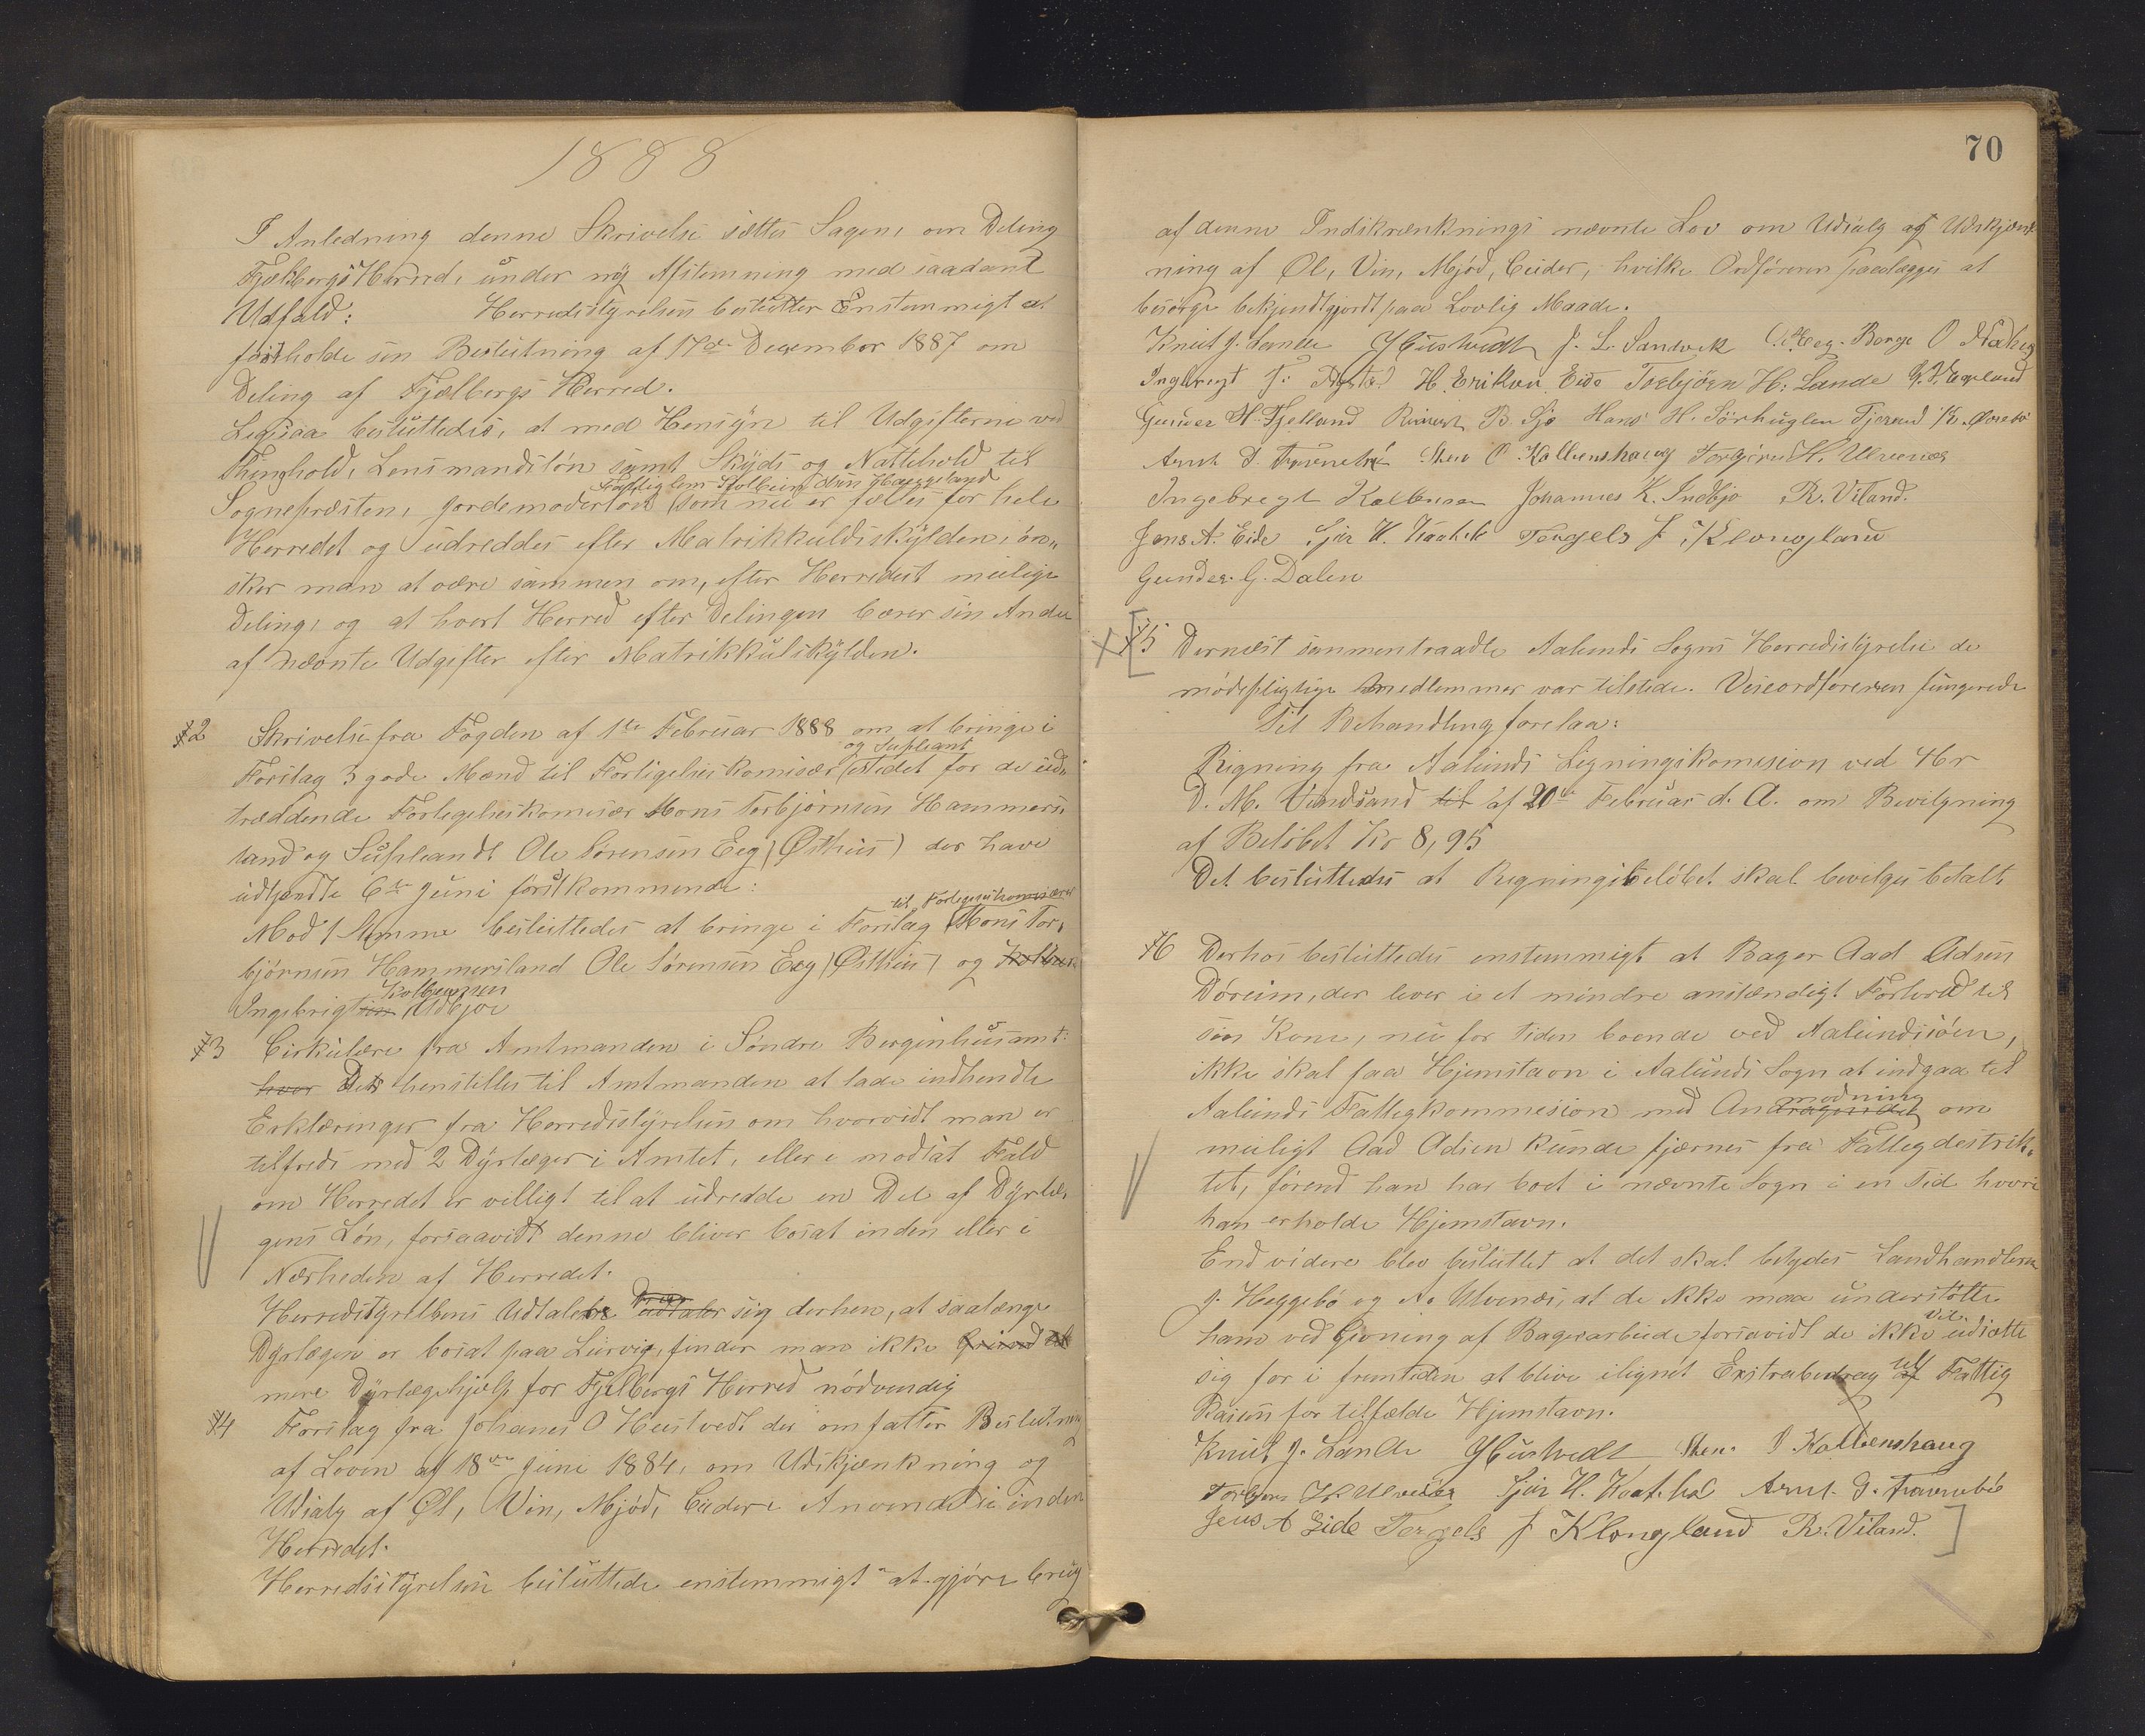 1888
I Anledning denne Skrivelse sættes Sagen, om Deling
Fjelbergs Herred, under ny Afstemning med saadant
Udfald: Herredsstyrelsen beslutter Enstemmigt at
fastholde sin Beslutning af 17de December 1887 om
Deling af Fjælbergs Herred.
Ligesaa besluttedes, at med Hensyn til Udgifterne ved
Thinghold, Lensmandsløn samt Skyds og Nattehold til
Sognepræsten, Jordemoderløn (som nu er fælles for hele
Herredet og udreddes efter Matrikkuldskylden, øn-
sker man at være sammen om, efter Herredets mulige
Deling, og at hvert Herred efter Delingen bærer sin Andel
af nævnte Udgifter efter Matrikkulskylden.
2 Skrivelse fra Fogden af 1ste Februar 1888 om at bringe i
og Supleant
Forslag 3 gode Mænd til Forligelseskomisær istedet for de ud-
træddende Forlegelseskomisær Mons Torbjørnsen Hammers-
land og Supleandt Ole Sørensen Eeg (Østhus) der have
udtjendte 6te Juni førstkommende:
til Forligeseskomisærer
Mod 1 Stemme besluttedes at bringe i Forslag Mons Tor-
bjørnsen Hammersland Ole Sørensen Eeg (Østhus) og
Kolbensen
Ingebrigt Indbjoe
3 Cirkulære fra Amtmanden i Søndre Bergenhus amt:
hvor Det henstilles til Amtmanden at lade indhendte
Erklæringer fra Herredsstyrelsen om hvorvidt man er
tilfreds med 2 Dyrlæger i Amtet, eller i modsat Fald
om Herredet er velligt til at udredde en Del af Dyrlæ-
gens Løn, forsaavidt denne bliver bosat inden eller i
Nærheden af Herredet.
Herredsstyrelsens Udtalelse udtaler sig derhen, at saalænge
Dyrlægen er bosat paa Lervig, finder man ikke Grund at
mere Dyrlægehjælp for Fjelbergs Herred nødvendig
4 Forslag fra Johanes O Hustvedt der omfatter Beslutning
af Loven af 18de Juni 1884, om Udskjænkning og
Udsalg af Øl, Vin, Mjød, Cider i Anvendelse inden
Herredet.
Herredsstyrelsen besluttede enstemmigt at gjøre brug
70
af denne Indskrænknings nævnte Lov om Udsalg og Udskjænk
ning af Øl, Vin, Mjød, Cider, hvilke Ordføreren paalægges at
besørge bekjendtgjordt paa Lovlig Maade.
Knut J. Lande JHustvedt J. L. Sandvik Borge O
Ingbregt J. H. Eriksen Eide Torbjörn H. Lande
Gunder H. Fjelland B. Sjo Hans H. Sörhuglen Tjerand K.
Arnt S. Sten O. Kolbenshaug Torgirs H. Ulvenæs
Ingebregt Kolbensen Johannes K. Indbjo R. Viland.
Jens A. Eide Sjur H. Tergels J. Klongland
Gunder G. Dalen
5 Dernæst sammentraadte Aalunds Sogns Herredsstyrelse de
mødepligtige medlemmer var tilstede. Viseordføreren fungerede
Til Behandling forelaa:
Rigning fra Aalunds Ligningskomision ved Hr
D. M. Vindsand til af 20de Februar d. A. om Bevilgning
af Beløbet Kr 8,95
Det besluttedes at Regningsbeløbet skal bevilges betalt
6 Derhos besluttedes enstemmigt at Bager Aad Adsen
Døreim, der lever i et mindre anstændigt Forhold til
sin Kone, nu for tiden boende ved Aalundsiøen,
ikke skal faa Hjemstavn i Aalunds Sogn at indgaa til
modning
Aalunds Fattigkommesion med Andragendet om
muligt Aad Adsen kunde fjærnes fra Fattegdestrik-
tet, førend han har boet i nævnte Sogn i en Tid hvori
han erholde Hjemstavn.
End videre blev besluttet at det skal betydes Landhandlerne
J. Heggebö og A. Ulvenæs, at de ikke maa understötte
vil
ham ved Givning af Bagerarbeide forsavidt de ikke udsætte
sig for i fremtiden at blive ilignet Exstrabedrag til Fattig
Kasen for tilfælde Hjemstavn.
Knut J. Lande JHustvedt Sten O Kolbenshaug
Torgirs H. Ulvenæs Sjur H. Arnt S.
Jens A Eide Tergels J Klongland R. Viland.